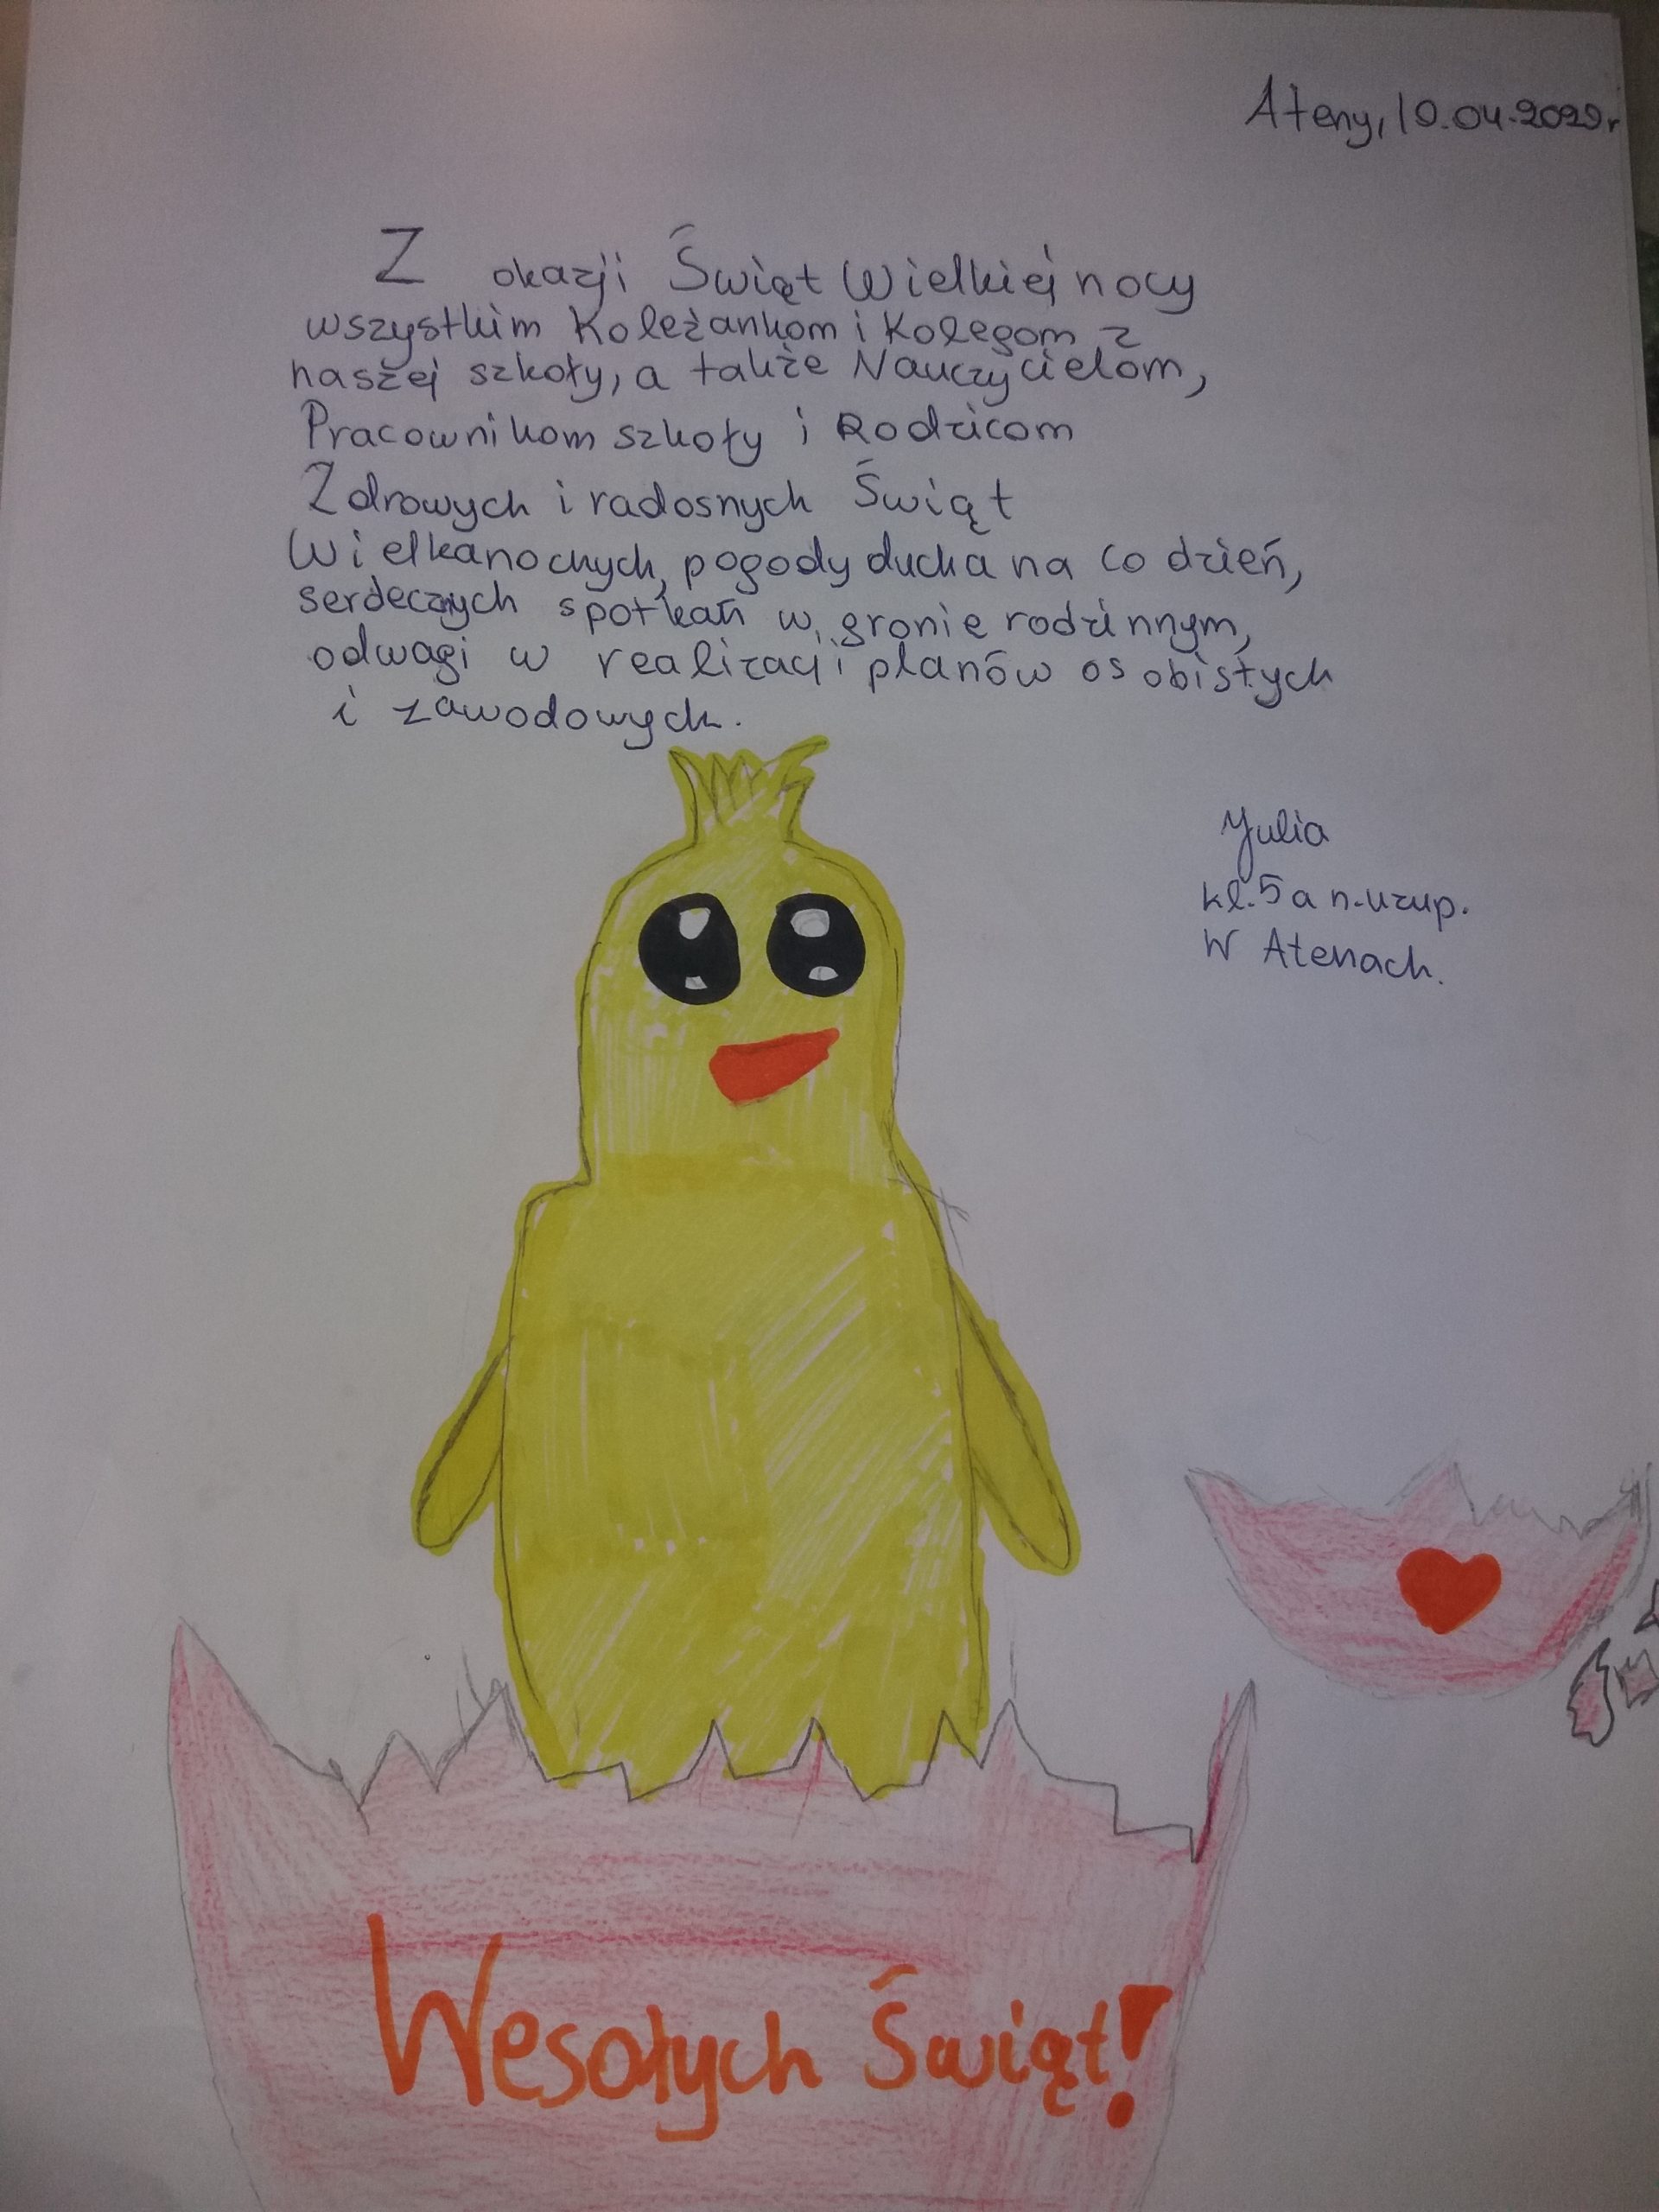 Ateny, 10.04.2020r
Z okazji Świąt Wielkiejnocy
wszystkim Koleżankom i Kolegom z
naszej szkoły, a także Nauczycielom,
Pracownikom szkoły i Rodzicom
Zdrowych i radosnych Świąt
Wielkanocnych, pogody ducha na co dzień,
serdecznych spotkań w gronie rodzinnym,
odwagi w realizacji planów osobistych
i zawodowych.
Julia
kl.5a n.uzup.
W Atenach.
Wesołych Świąt!